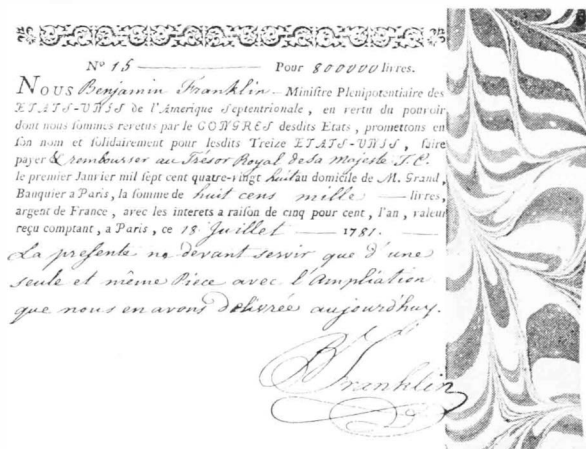 Nº 15 Pour 800000 livres.
NOUS Benjamin Franklin Ministre Plenipotentiaire des
ETATS-UNIS de l'Amerique Septentrionale, en vertu du pouvoir
dont nous sommes revetus par le CONGRES desdits Etats, promettons en
son nom et solidairement pour lesdits Treize ETATS-UNIS, faire
payer & rembourser au Trésor Royal de sa Majesté T. C.
le premier Janvier mil sept cent quatre-vingt huit au domicile de M. Grand,
Banquier a Paris, la somme de huit cens mille livres,
argent de France, avec les interets a raison de cinq pour cent, l'an, valeur
reçu comptant, a Paris, ce 18 Juillet 1781.
La presente ne devant servir que d'une
seule et même Piece avec l'Ampliation
que nous en avons délivrée aujourdhuy.
B Franklin